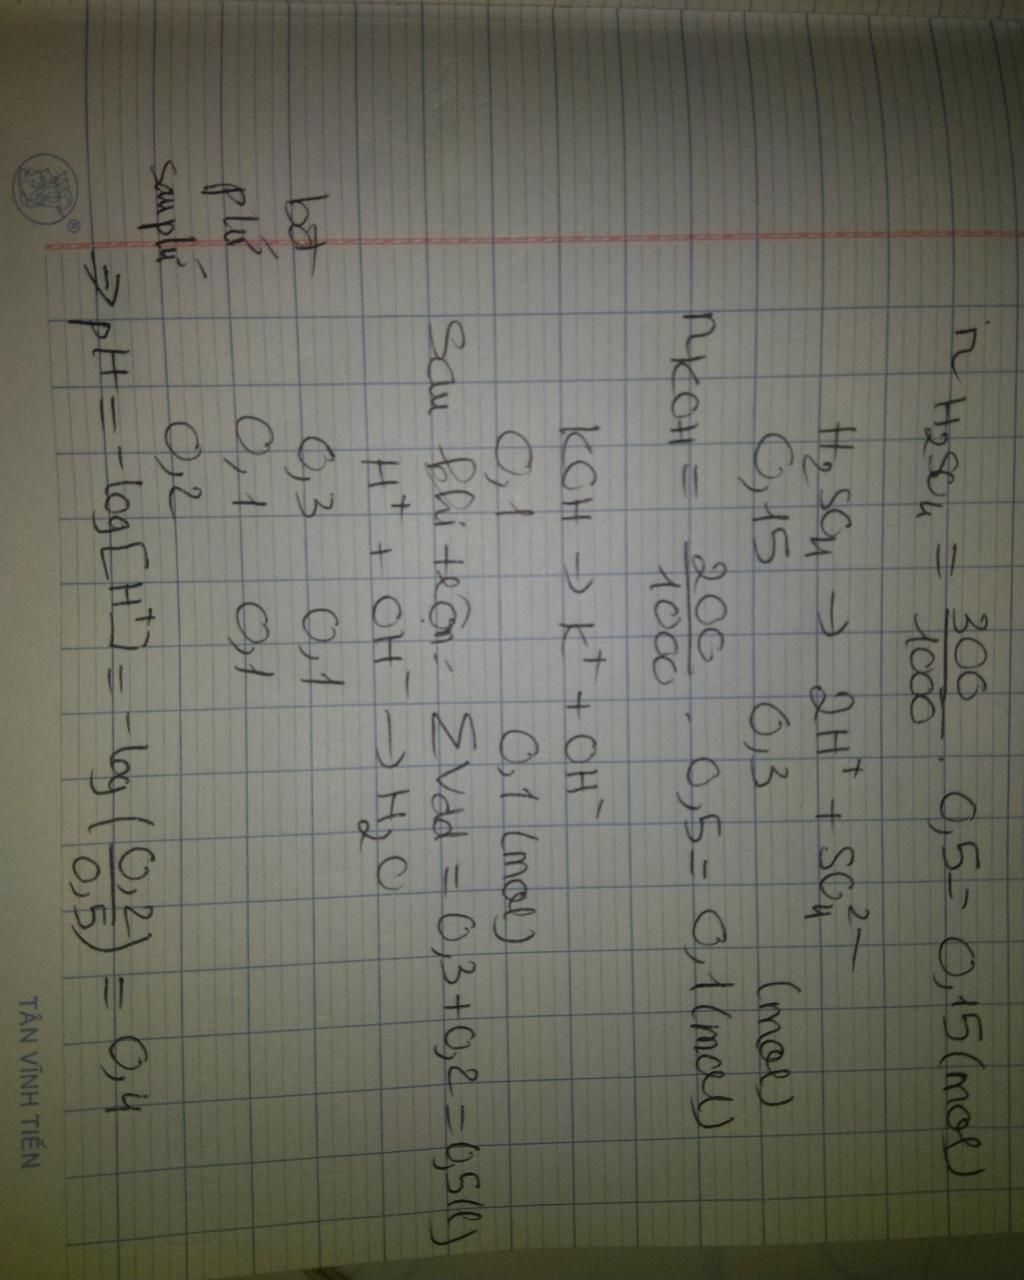 n H₂SO₄ = 300/1000 . 0,5 = 0,15 (mol)
H₂SO₄ → 2H⁺ + SO₄²⁻
0,15 0,3 (mol)
nKOH = 200/1000 . 0,5 = 0,1 (mol)
KOH → K⁺ + OH⁻
0,1 0,1 (mol)
Sau khi trộn: ΣVdd = 0,3 + 0,2 = 0,5 (l)
H⁺ + OH⁻ → H₂O
bđ 0,3 0,1
pứ 0,1 0,1
sau pứ 0,2
⇒ pH = -log[H⁺] = -log(0,2/0,5) = 0,4
® TÂN VĨNH TIẾN